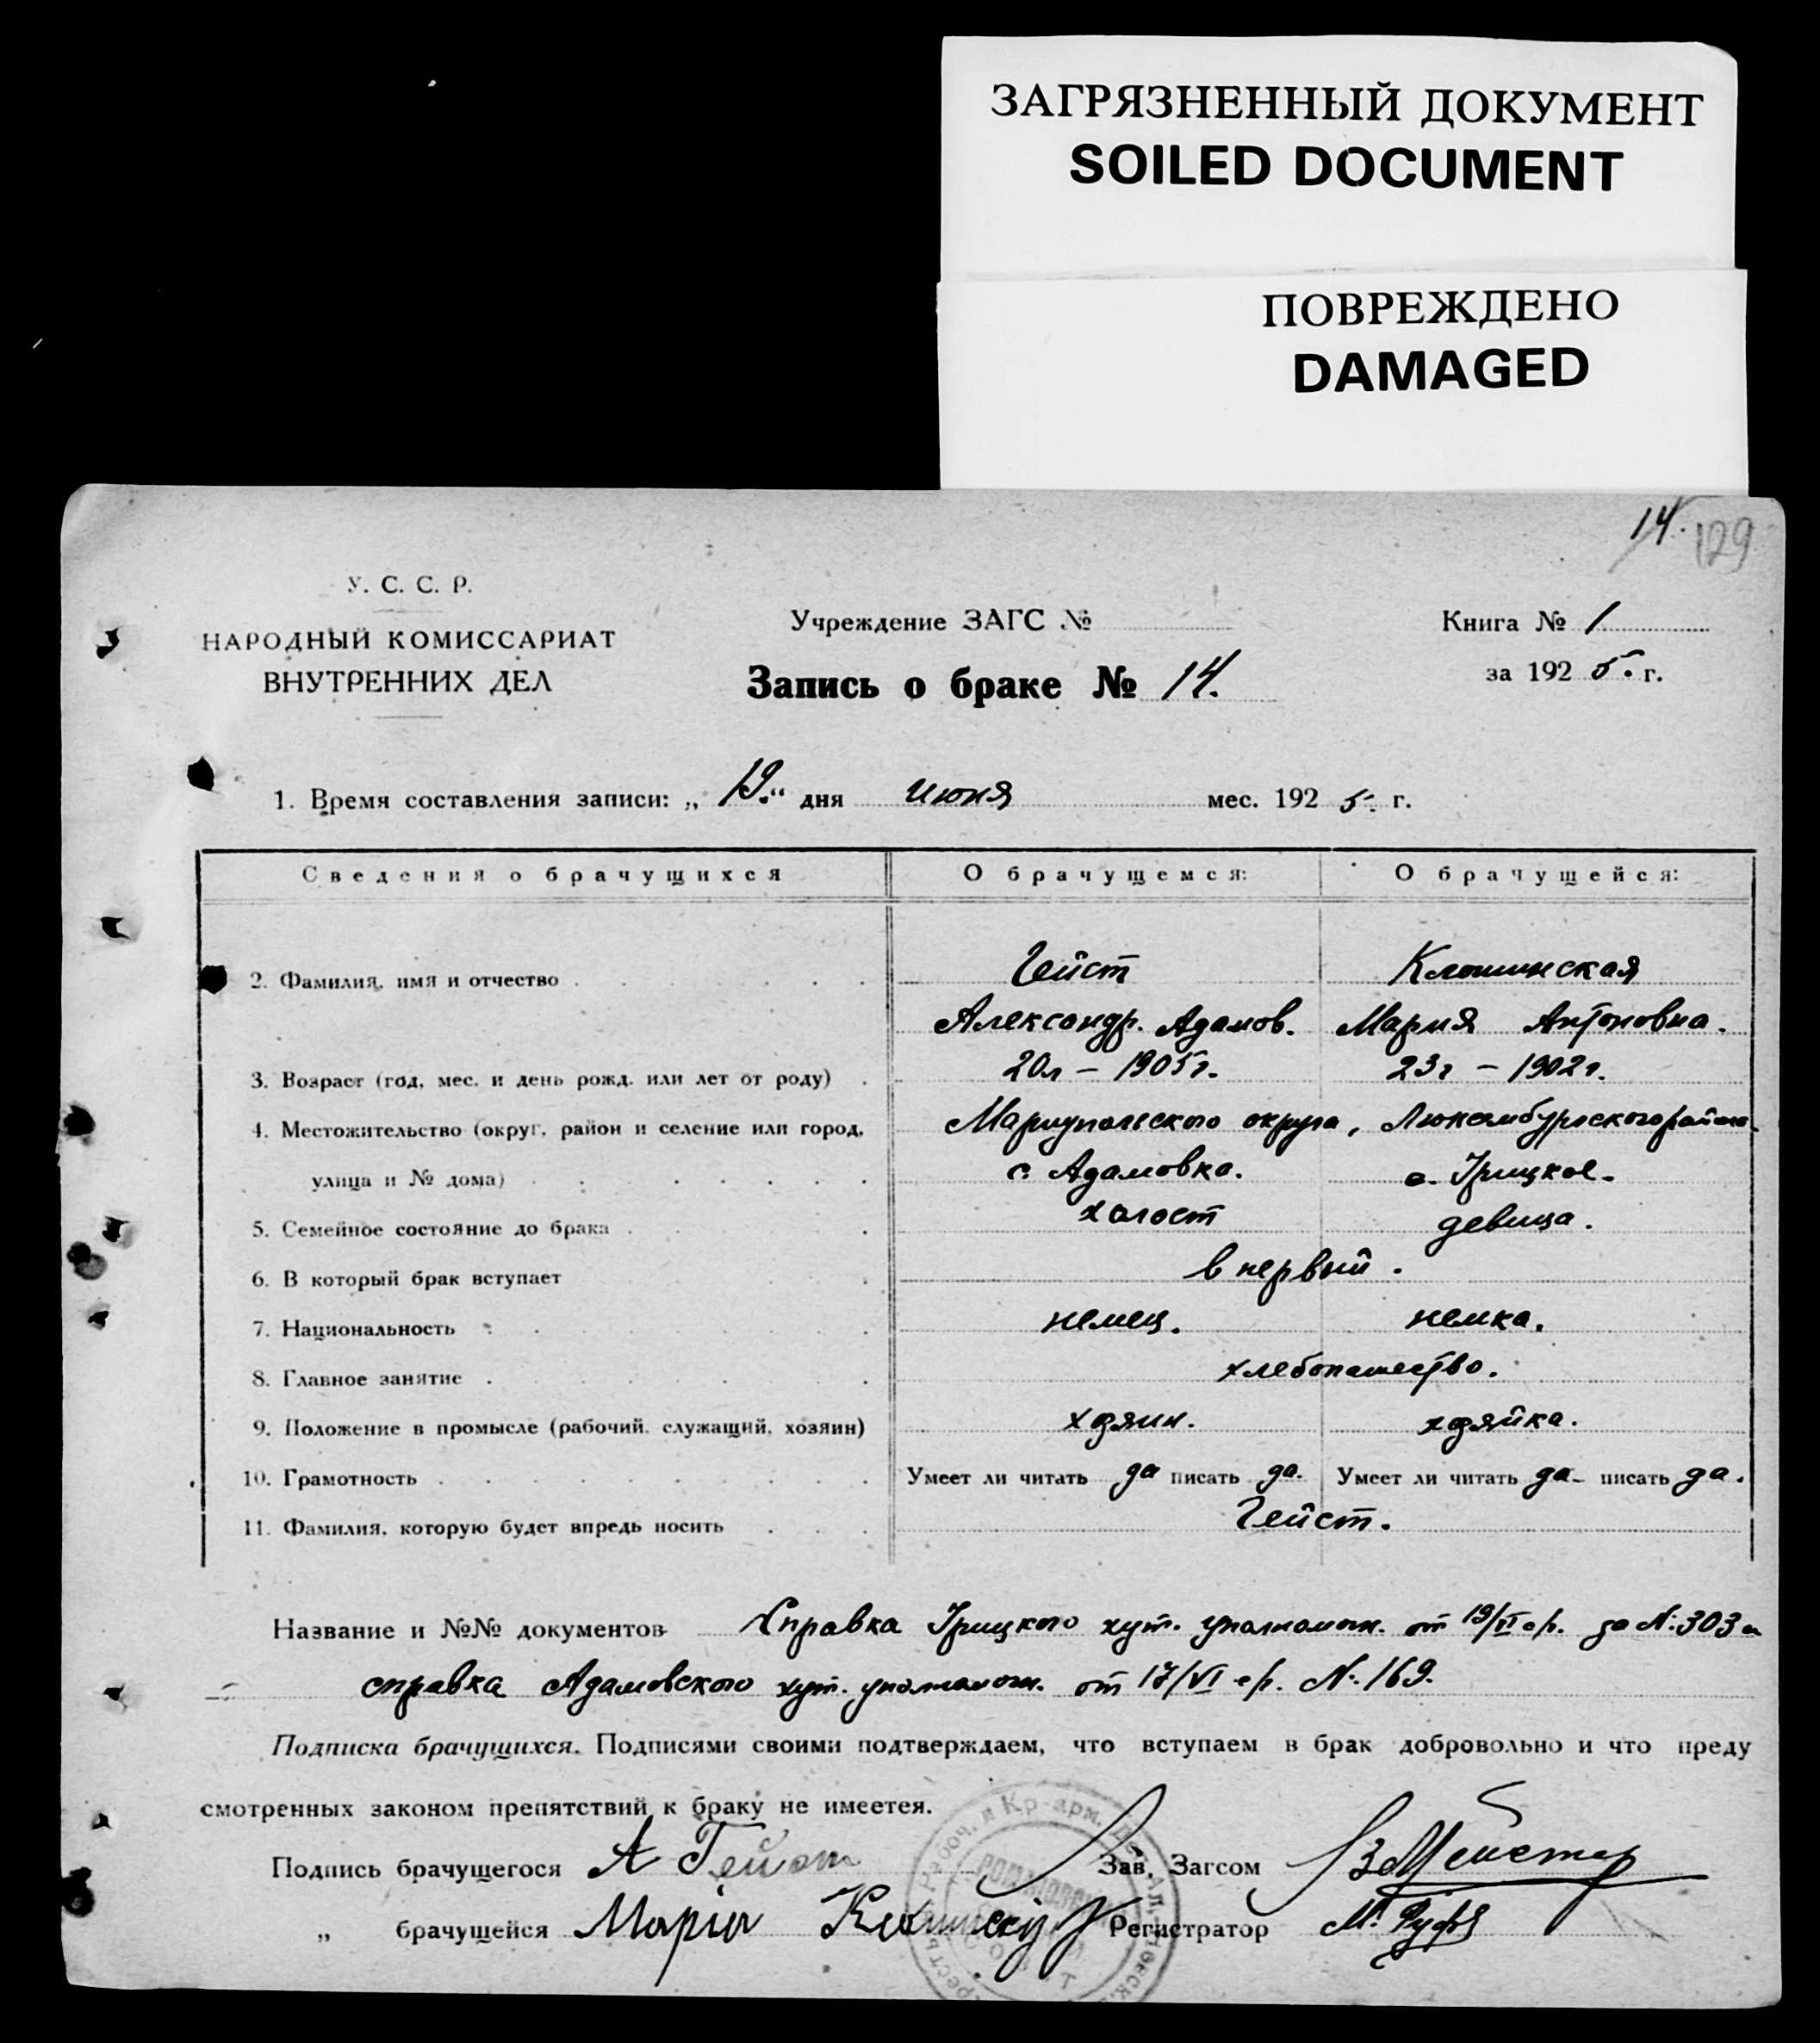 ЗАГРЯЗНЕННЫЙ ДОКУМЕНТ
SOILED DOCUMENT
ПОВРЕЖДЕНО
DAMAGED
14. 129
У. С. С. Р.
НАРОДНЫЙ КОМИССАРИАТ
ВНУТРЕННИХ ДЕЛ
Учреждение ЗАГС №
Запись о браке № 14.
Книга № 1
за 1925. г.
1. Время составления записи: „ 19. “ дня июня мес. 1925. г.
Сведения о брачущихся О брачущемся: О брачущейся:
2. Фамилия, имя и отчество Гейст Клошинская
Александр. Адамов. Мария Антоновна.
3. Возраст (год, мес. и день рожд. или лет от роду) 20л – 1905г. 23г – 1902г.
4. Местожительство (округ, район и селение или город, Мариупольского округа, Люксембургского района
улица и № дома) с. Адамовка. с. Грицкое.
5. Семейное состояние до брака холост девица.
6. В который брак вступает в первый.
7. Национальность немец. немка.
8. Главное занятие хлебопашество.
9. Положение в промысле (рабочий, служащий, хозяин) хозяин. хозяйка.
10. Грамотность Умеет ли читать да писать да. Умеет ли читать да писать да.
11. Фамилия, которую будет впредь носить Гейст.
Название и №№ документов Справка Грицкого хут. уполномоч. от 19/VI с/г. за №: 303 и
справка Адамовского хут. уполномоч. от 17/VI с/г. №: 169.
Подписка брачущихся. Подписями своими подтверждаем, что вступаем в брак добровольно и что преду
смотренных законом препятствий к браку не имеетея.
Подпись брачущегося А Гейст Зав. Загсом
„ брачущейся Марія Регистратор